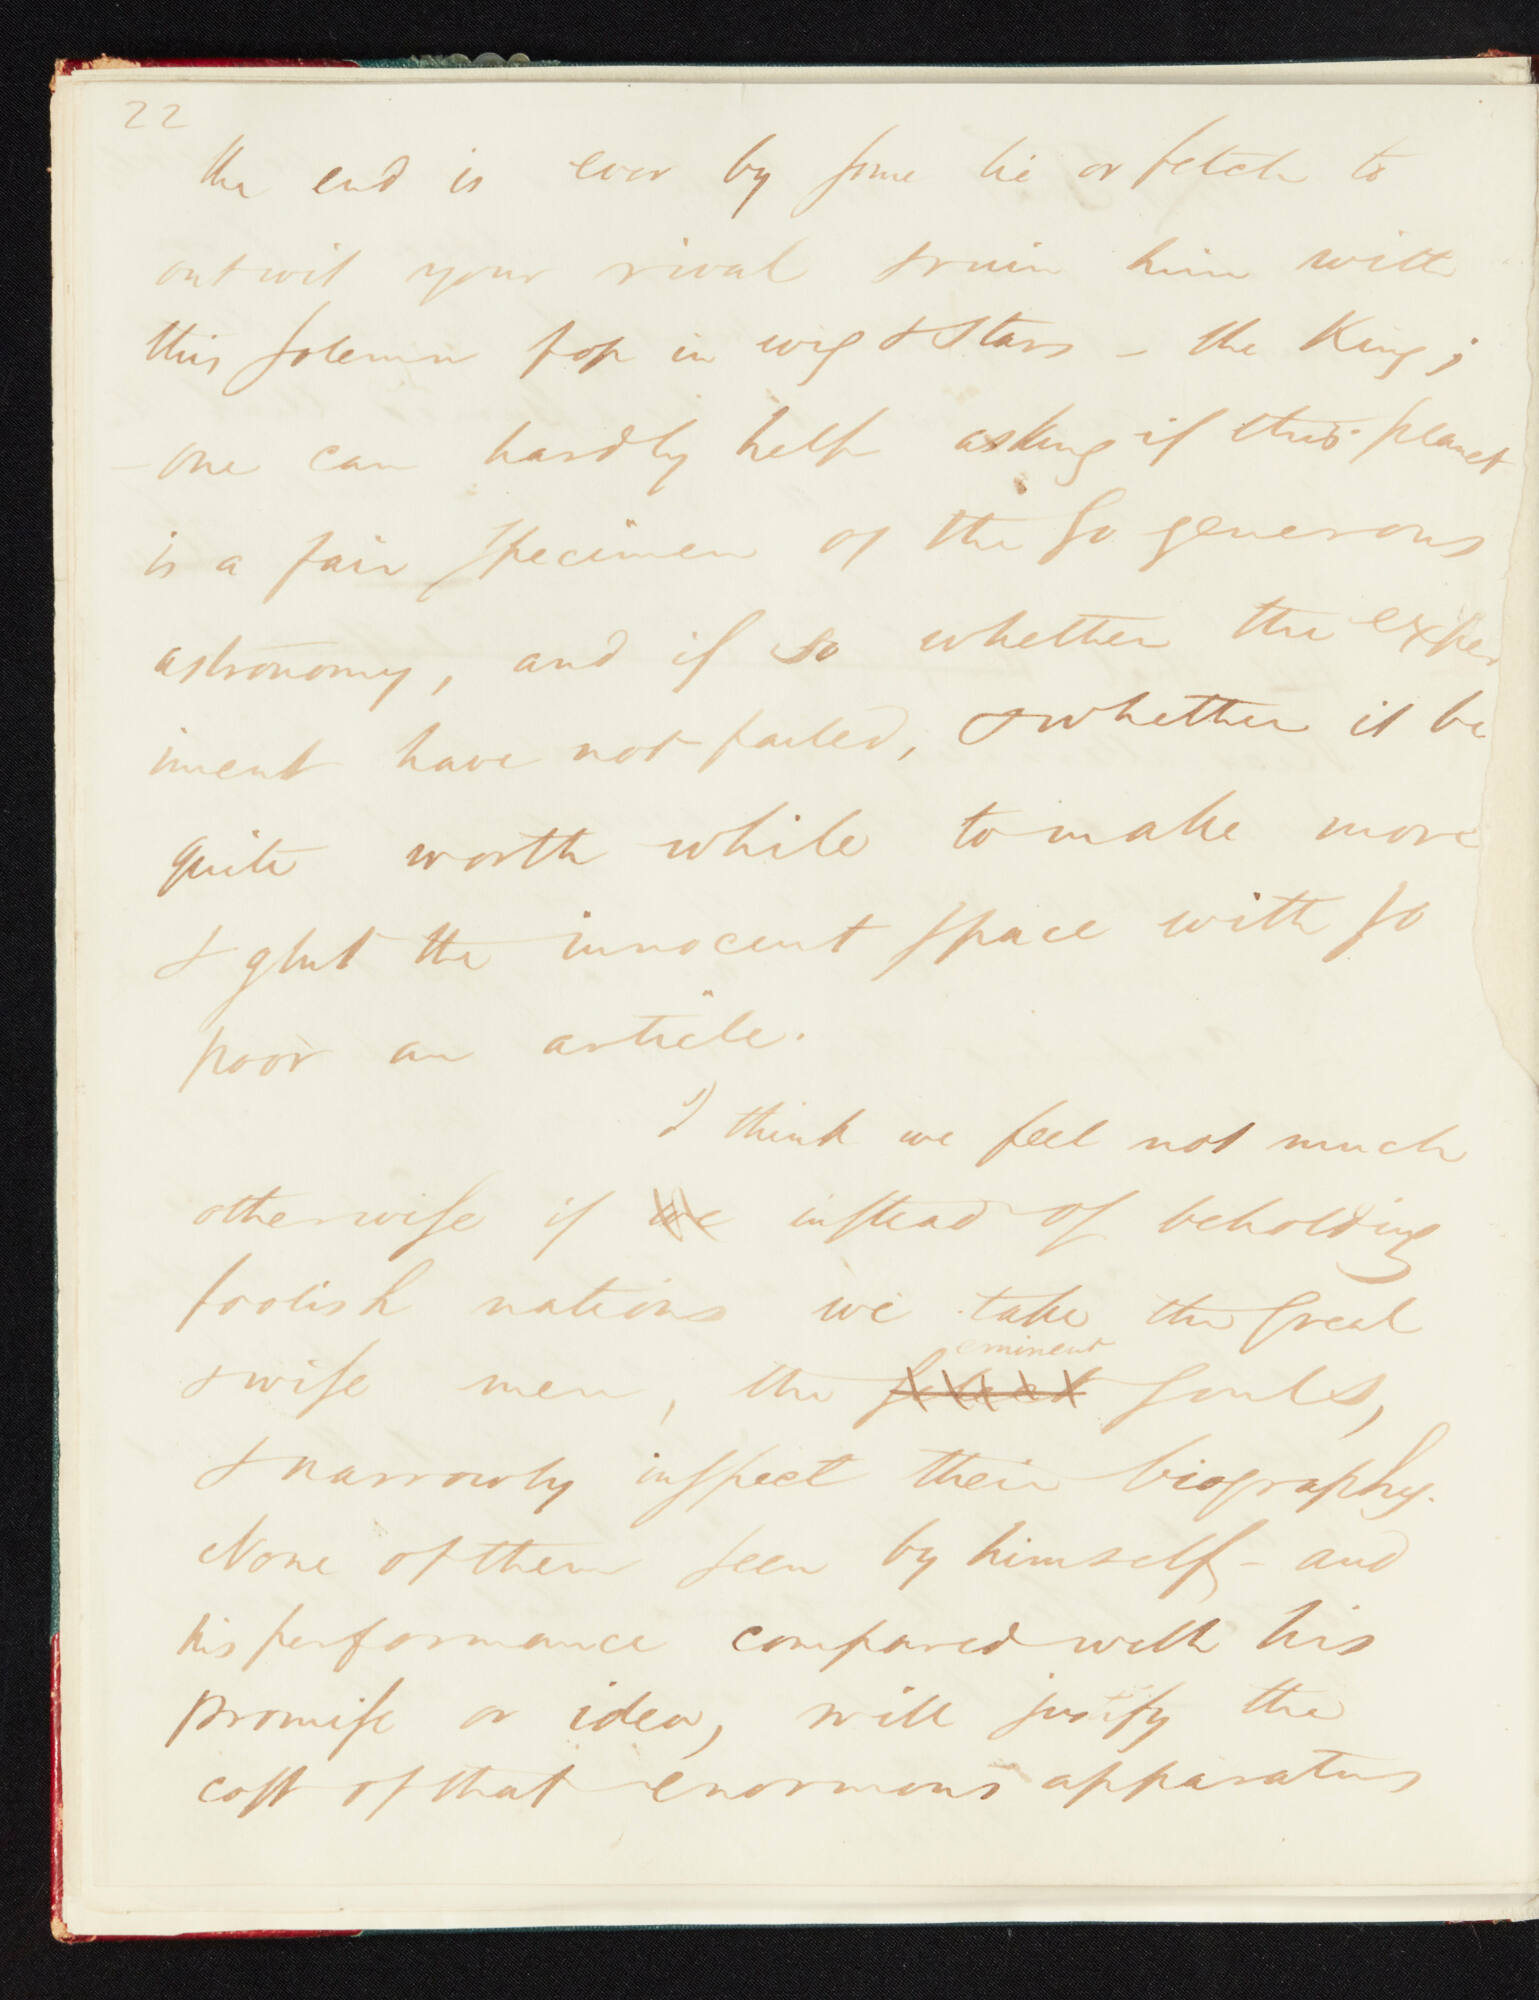 22
the end is ever by some lie or fetch to
outwit your rival & ruin him with
this solemn fop in wig & stars – the King;
– one can hardly help asking if this planet
is a fair specimen of the so generous
astronomy, and if so whether the exper
iment have not failed, & whether it be
quite worth while to make more
& glut the innocent space with so
poor an article.
I think we feel not much
otherwise if we instead of beholding
foolish nations we take the great
eminent
& wise men, the select souls,
& narrowly inspect their biography.
None of them seen by himself – and
his performance compared with his
promise or idea, will justify the
cost of that enormous apparatus